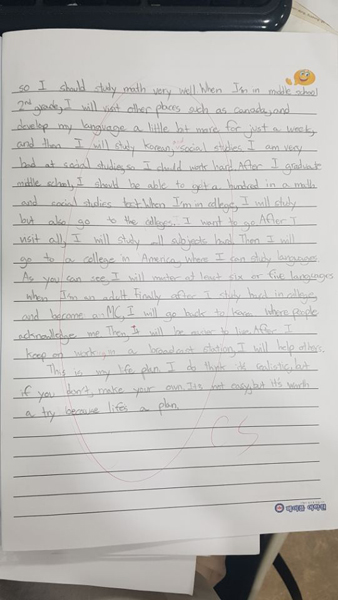 so I should study math very well. When I'm in middle school
2nd grade, I will visit other places such as Canada, and
develop my language a little bit more for just a week,
and then I will study Korean, social studies. I am very
bad at social studies, so I should work hard. After I graduate
middle school, I should be able to get a hundred in a math
and social studies test. When I'm in college, I will study
but also go to the colleges I want to go. After I
visit all, I will study all subjects hard. Then I will
go to a college in America, where I can study languages.
As you can see, I will master at least six or five languages
when I'm an adult. Finally, after I study hard in college,
and become a MC, I will go back to Korea where people
acknowledge me. Then, It will be easier to live. After I
keep on work in a broadcast station, I will help others.
This is my life plan. I do think it's realistic, but
if you don't, make your own. Its not easy, but it's worth
a try because life's a plan.
CS